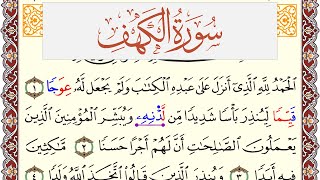 سُورَةُ الْكَهْفِ
الْحَمْدُ لِلَّهِ الَّذِي أَنزَلَ عَلَىٰ عَبْدِهِ الْكِتَابَ وَلَمْ يَجْعَل لَّهُ عِوَجًا ١
قَيِّمًا لِّيُنذِرَ بَأْسًا شَدِيدًا مِّن لَّدُنْهُ وَيُبَشِّرَ الْمُؤْمِنِينَ الَّذِينَ
يَعْمَلُونَ الصَّالِحَاتِ أَنَّ لَهُمْ أَجْرًا حَسَنًا ٢ مَّاكِثِينَ
فِيهِ أَبَدًا ٣ وَيُنذِرَ الَّذِينَ قَالُوا اتَّخَذَ اللَّهُ وَلَدًا ٤